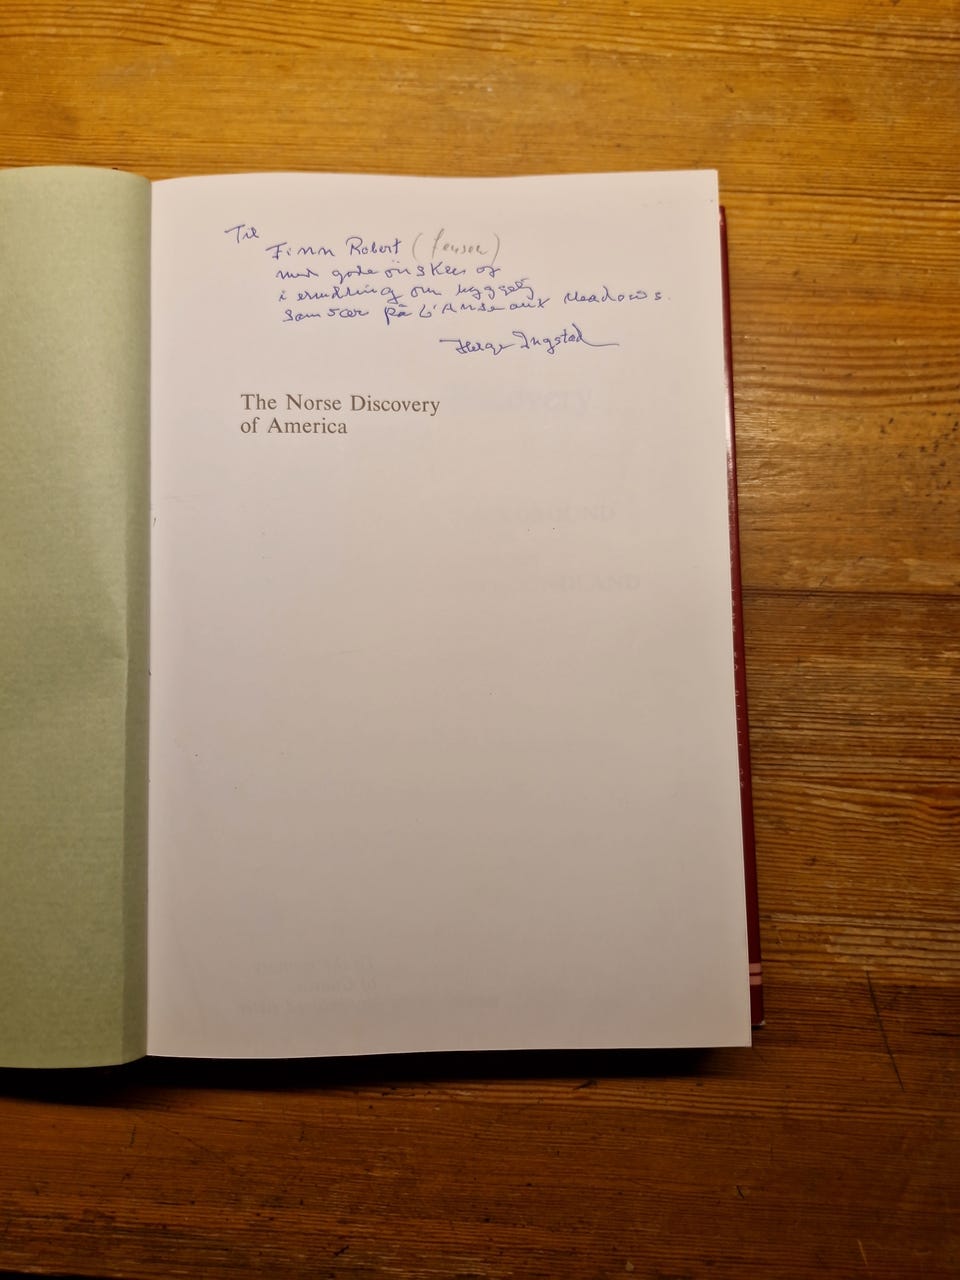 Til
Finn Robert (Jensen)
med gode ønsker og
i erindring om hyggelig
samvær på L'Anse aux Meadows.
Helge Ingstad
The Norse Discovery
of America